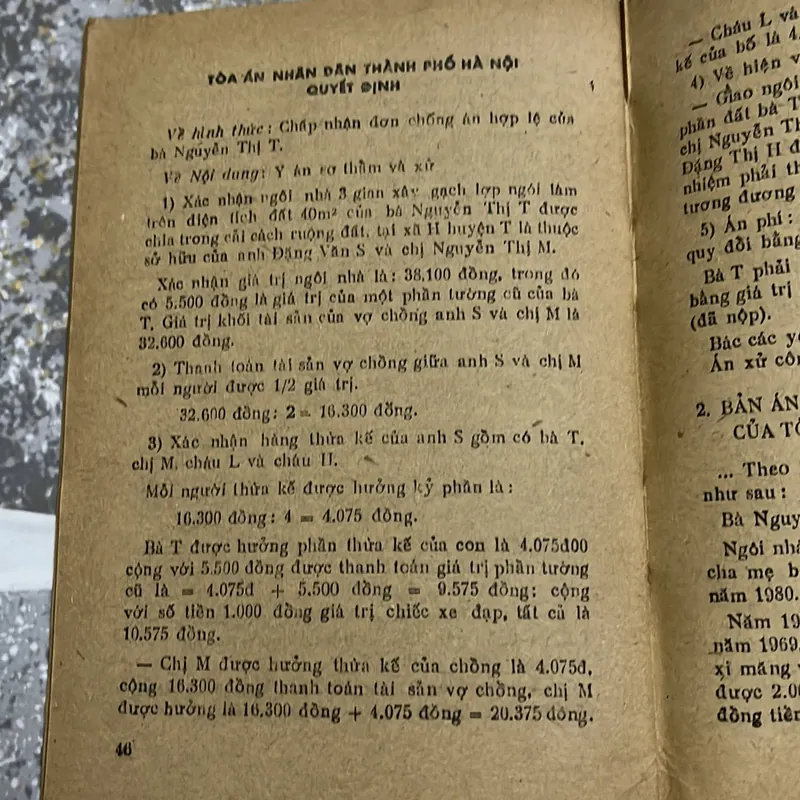 TÒA ÁN NHÂN DÂN THÀNH PHỐ HÀ NỘI
QUYẾT ĐỊNH
Về hình thức: Chấp nhận đơn chống án hợp lệ của
bà Nguyễn Thị T.
Về Nội dung: Y án sơ thẩm và xử
1) Xác nhận ngôi nhà 3 gian xây gạch lợp ngói làm
trên diện tích đất 40m² của bà Nguyễn Thị T được
chia trong cải cách ruộng đất, tại xã H huyện T là thuộc
sở hữu của anh Đặng Văn S và chị Nguyễn Thị M.
Xác nhận giá trị ngôi nhà là: 38.100 đồng, trong đó
có 5.500 đồng là giá trị của một phần tường cũ của bà
T. Giá trị khối tài sản của vợ chồng anh S và chị M là
32.600 đồng.
2) Thanh toán tài sản vợ chồng giữa anh S và chị M
mỗi người được 1/2 giá trị.
32.600 đồng: 2 = 16.300 đồng.
3) Xác nhận hàng thừa kế của anh S gồm có bà T,
chị M, cháu L và cháu H.
Mỗi người thừa kế được hưởng kỷ phần là:
16.300 đồng: 4 = 4.075 đồng.
Bà T được hưởng phần thừa kế của con là 4.075đ00
cộng với 5.500 đồng được thanh toán giá trị phần tường
cũ là = 4.075đ + 5.500 đồng = 9.575 đồng; cộng
với số tiền 1.000 đồng giá trị chiếc xe đạp, tất cả là
10.575 đồng.
— Chị M được hưởng thừa kế của chồng là 4.075đ,
cộng 16.300 đồng thanh toán tài sản vợ chồng, chị M
được hưởng là 16.300 đồng + 4.075 đồng = 20.375 đồng.
46
— Cháu L và
kế của bố là 4.
4) Về hiện v
— Giao ngôi
phần đất bà T
chị Nguyễn Th
Đặng Thị H đ
nhiệm phải th
tương đương
5) Án phí:
quy đổi bằng
Bà T phải
bằng giá trị
(đã nộp).
Bác các yê
Án xử côn
2. BẢN ÁN
CỦA TÒ
... Theo
như sau:
Bà Nguy
Ngôi nhà
cha mẹ b
năm 1980.
Năm 19
năm 1969.
xi măng v
được 2.00
đồng tiền